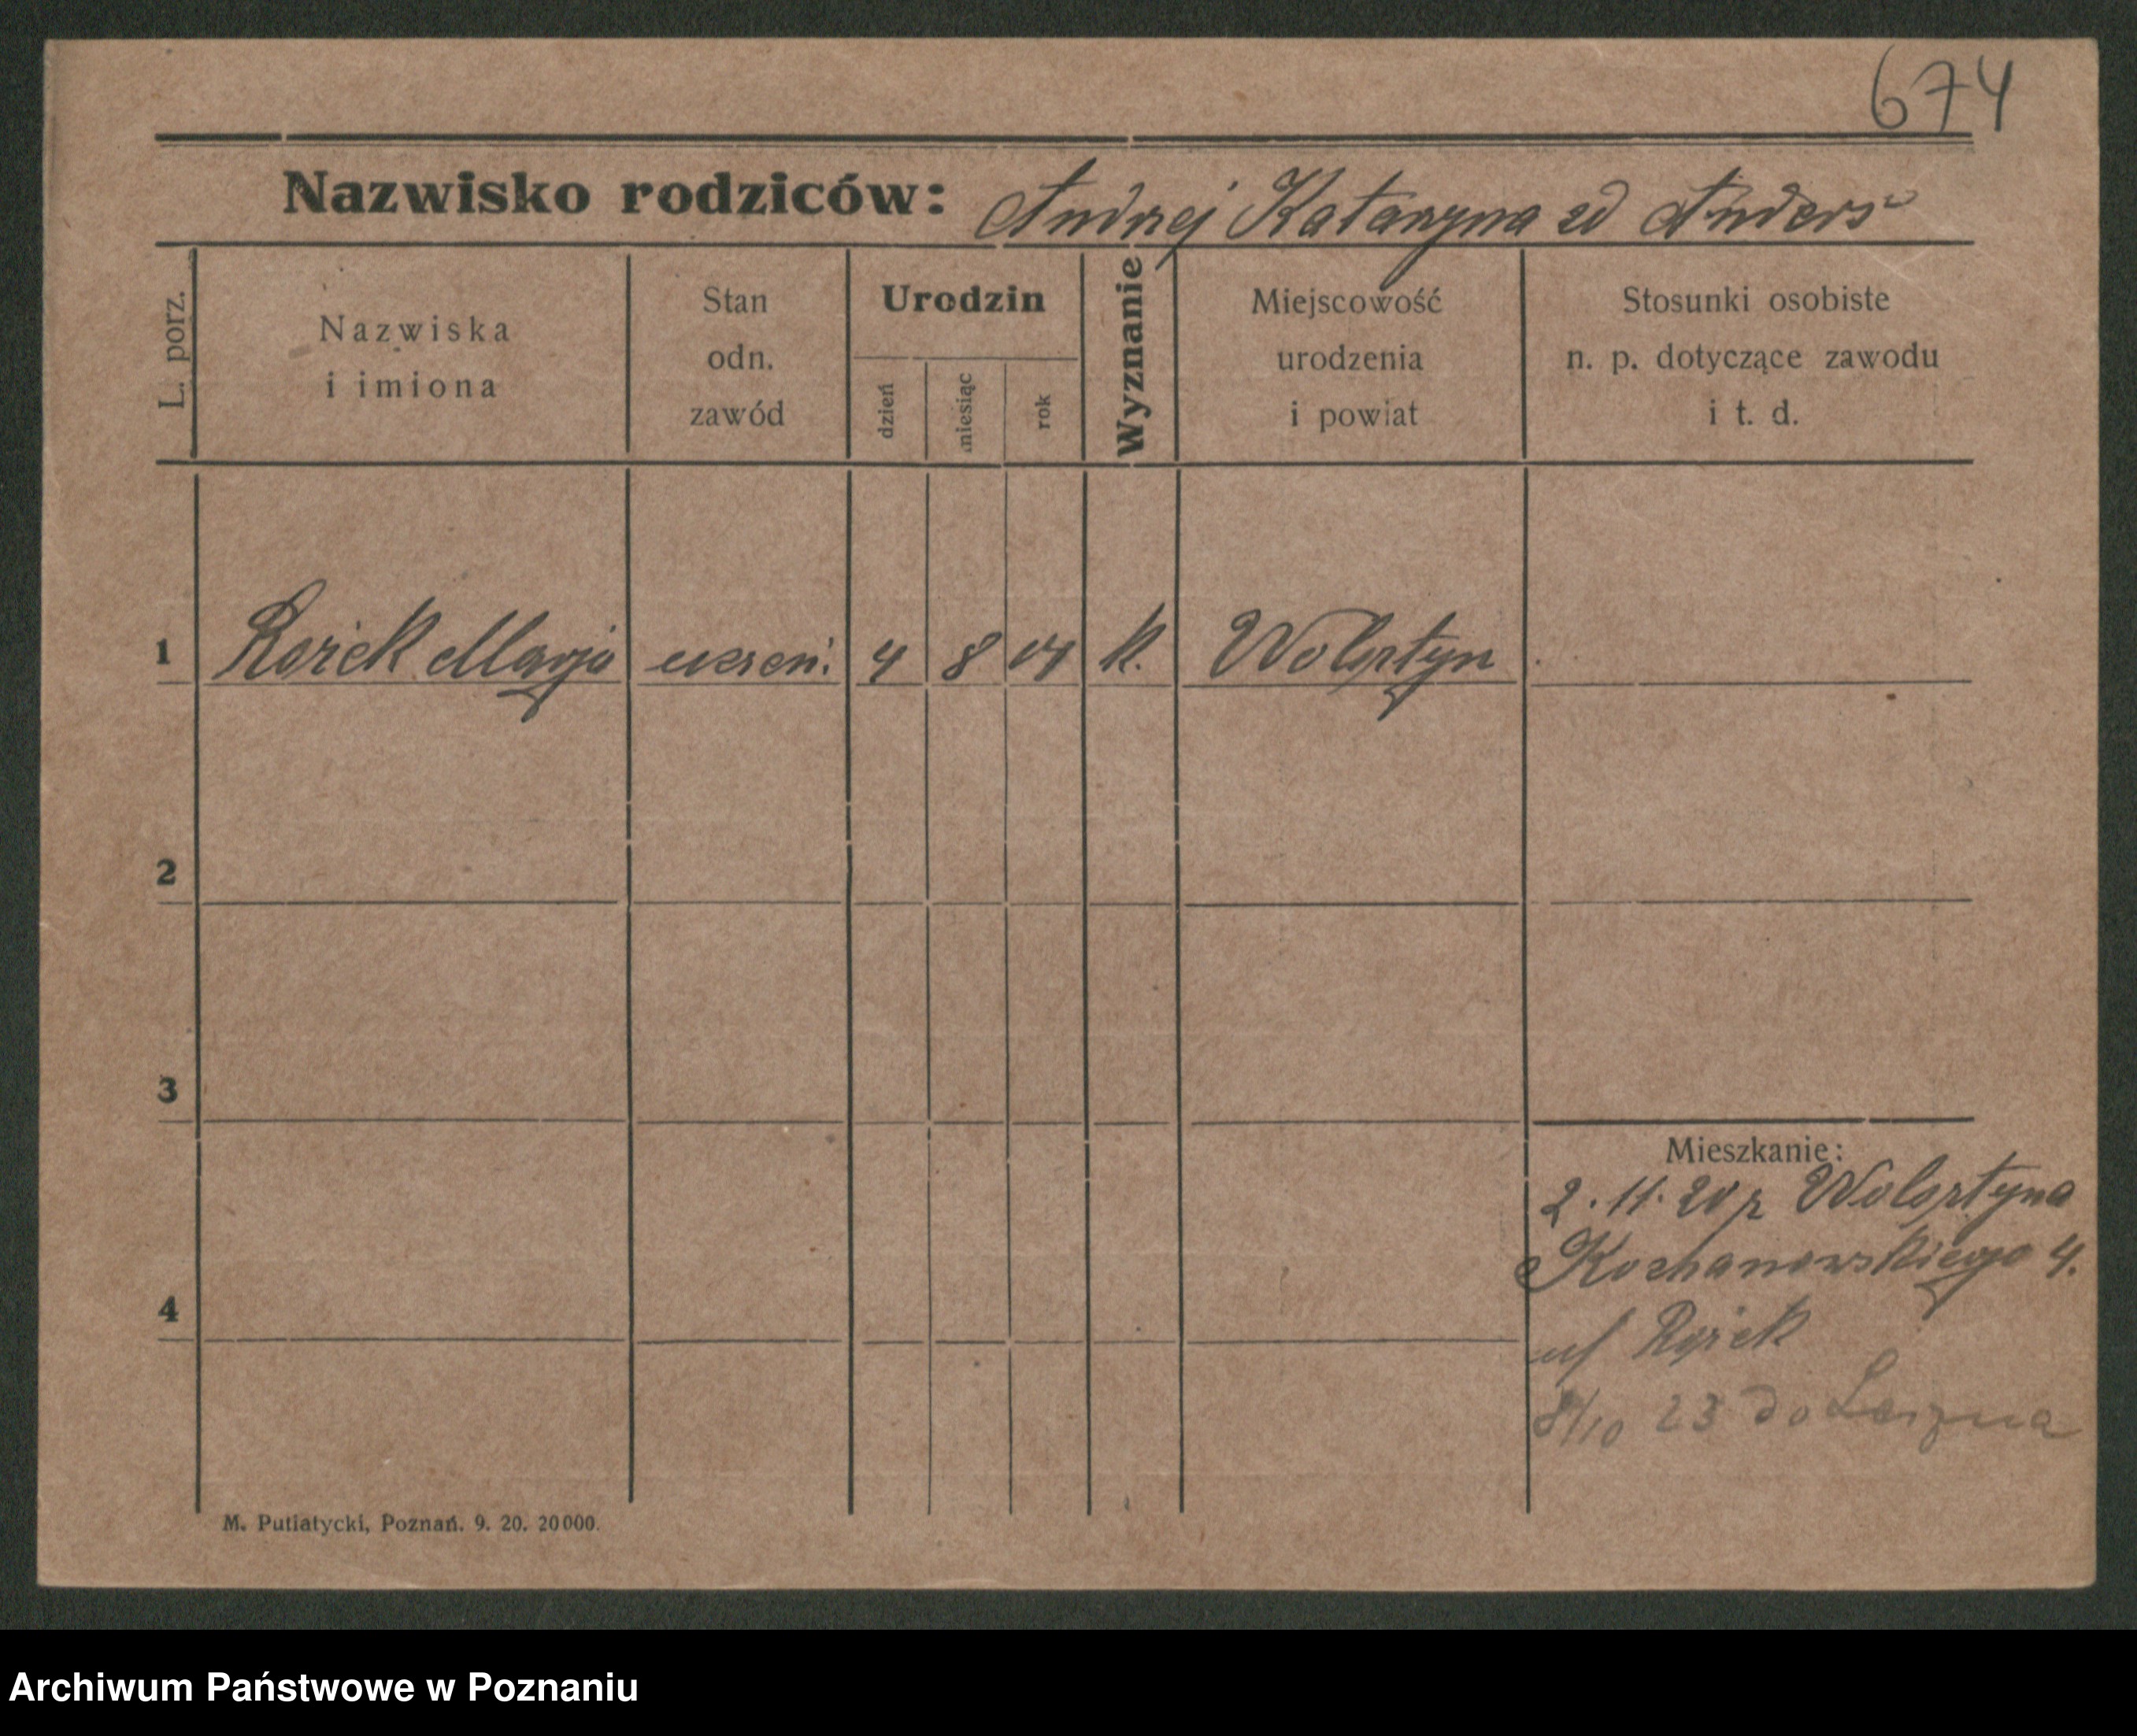 674
Nazwisko rodziców: Andrzej Katarzyna zd Anders
L. porz.
Nazwiska
i imiona
Stan
odn.
zawód
Urodzin
dzień
miesiąc
rok
Wyznanie
Miejscowość
urodzenia
i powiat
Stosunki osobiste
n. p. dotyczące zawodu
i t. d.
1 Marja uczeń. 4 8 04 k. Wolsztyn
2
3
4
Mieszkanie:
2. 11. 20 z Wolsztyna
Kochanowskiego 4.
8/10 23 do Leszna
M. Putiatycki, Poznań. 9. 20. 20000.
Archiwum Państwowe w Poznaniu